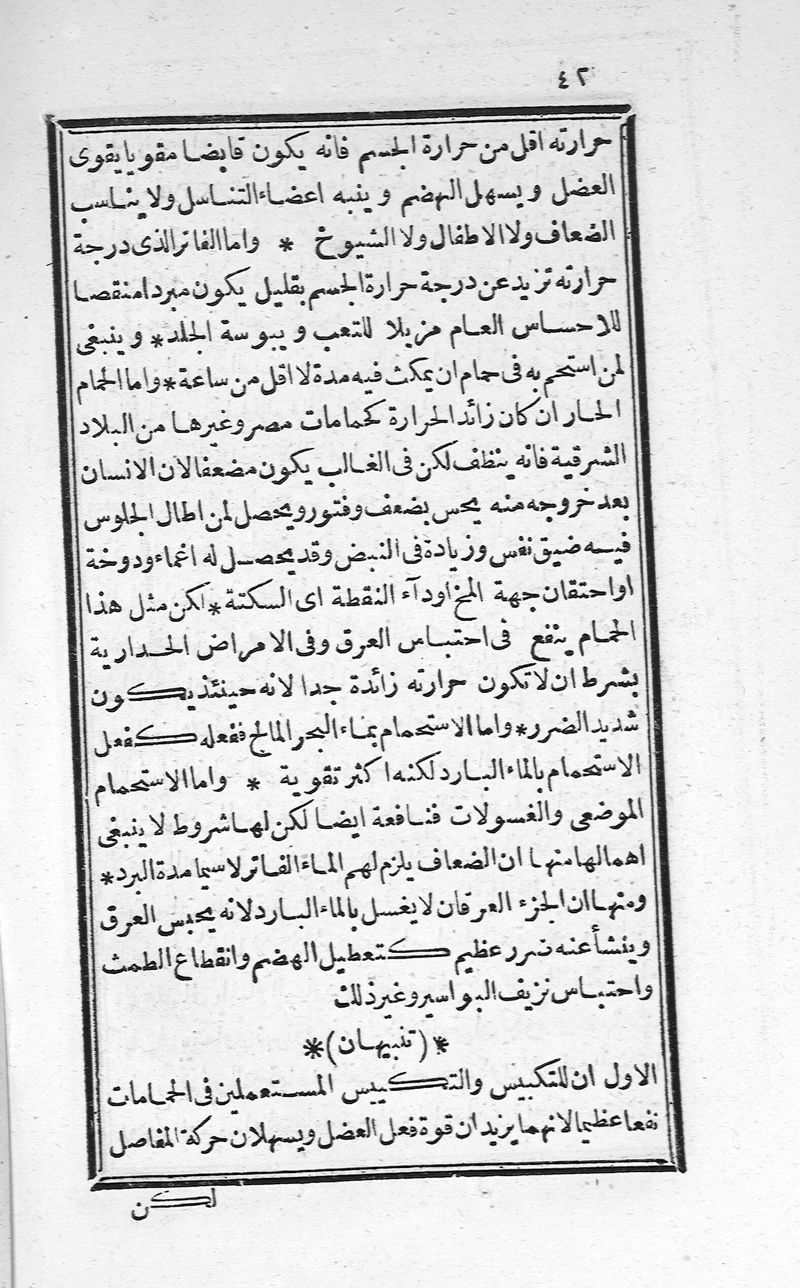 ٤٢
حرارته اقل من حرارة الجسم فانه يكون قابضا مقويا يقوى
العضل ويسهل الهضم وينبه اعضاء التناسل ولايناسب
الضعاف ولا الاطفال ولا الشيوخ * واما الفاتر الذى درجة
حرارته تزيد عن درجة حرارة الجسم بقليل يكون مبردا منقصا
للاحساس العام مزيلا للتعب ويبوسة الجلد * وينبغى
لمن استحم به فى حمام ان يمكث فيه مدة لا اقل من ساعة * واما الحمام
الحار ان كان زائد الحرارة كحمامات مصر وغيرها من البلاد
الشرقية فانه ينظف لكن فى الغالب يكون مضعفا لان الانسان
بعد خروجه منه يحس بضعف وفتور ويحصل لمن اطال الجلوس
فيه ضيق نفس وزيادة فى النبض وقد يحصل له اغماء ودوخة
او احتقان جهة المخ اوداآء النقطة اى السكتة * لكن مثل هذا
الحمام ينفع فى احتباس العرق وفى الامراض الحدارية
بشرط ان لا تكون حرارته زائدة جدا لانه حينئذ يكون
شديد الضرر * واما الاستحمام بماء البحر المالح ففعله كفعل
الاستحمام بالماء البارد لكنه اكثر تقوية * واما الاستحمام
الموضعى والغسولات فنافعة ايضا لكن لها شروط لا ينبغى
اهمالها منها ان الضعاف يلزم لهم الماء الفاتر لاسيما مدة البرد *
ومنها ان الجزء العرقان لا يغسل بالماء البارد لانه يحبس العرق
وينشأ عنه ضرر عظيم كتعطيل الهضم وانقطاع الطمث
واحتباس نزيف البواسير وغير ذلك
* (تنبيهان) *
الاول ان للتكبيس والتكييس المستعملين فى الحمامات
نفعا عظيما لانهما يزيدان قوة فعل العضل ويسهلان حركة المفاصل
لكن